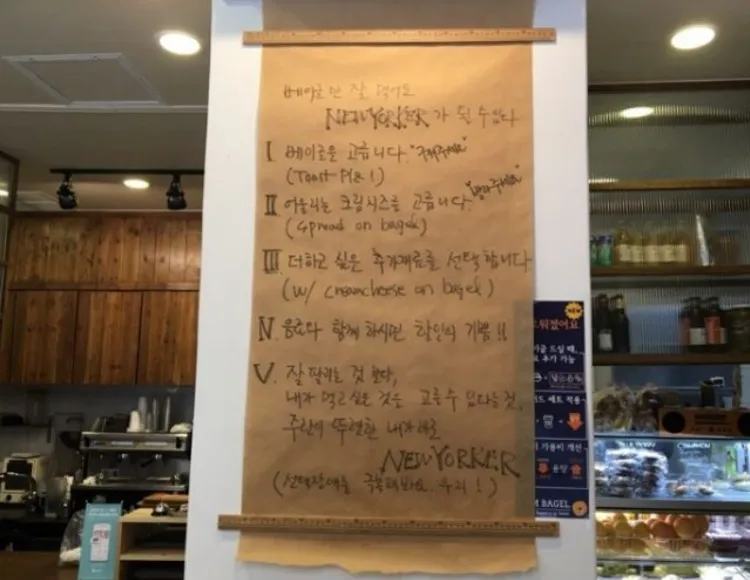 베이글만 잘 먹어도
NEWYORKER가 될 수 있다
I 베이글을 고릅니다. "구워주세요"
(Toast Plz!)
II 어울리는 크림치즈를 고릅니다. "발라주세요"
(Spread on bagel)
III 더하고 싶은 추가재료를 선택합니다
(w/ creamcheese on bagel)
IV 음료와 함께 하시면 할인의 기쁨!!
V. 잘 팔리는 것 보다,
내가 먹고싶은 것을 고를수 있다는 것,
주관이 뚜렷한 내가 바로
NEWYORKER
(선택장애를 극복해봐요.. 우리!)
NEW
워졌어요
추가 가능
세트 적용
개선
M BAGEL